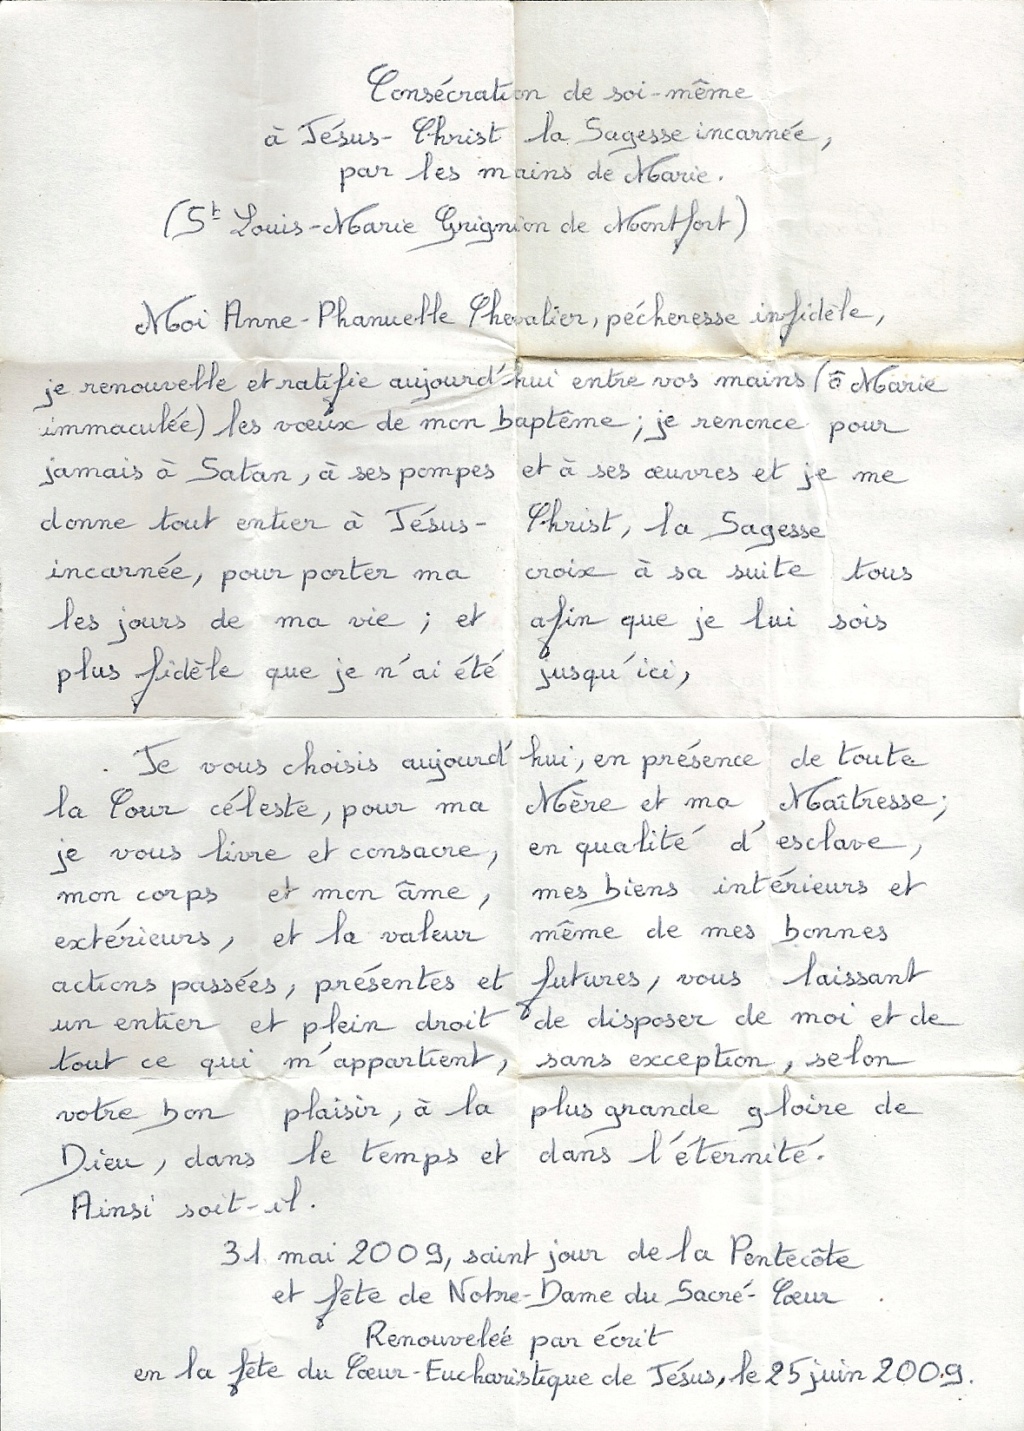 Consécration de soi-même
à Jésus-Christ la Sagesse incarnée,
par les mains de Marie.
(St Louis-Marie Grignion de Montfort)
Moi Anne-Phanuelle Chevalier, pécheresse infidèle,
je renouvelle et ratifie aujourd'hui entre vos mains (ô Marie
immaculée) les vœux de mon baptême ; je renonce pour
jamais à Satan, à ses pompes et à ses œuvres et je me
donne tout entier à Jésus-Christ, la Sagesse
incarnée, pour porter ma croix à sa suite tous
les jours de ma vie ; et afin que je lui sois
plus fidèle que je n'ai été jusqu'ici,
Je vous choisis aujourd'hui, en présence de toute
la Cour céleste, pour ma Mère et ma Maîtresse ;
je vous livre et consacre, en qualité d'esclave,
mon corps et mon âme, mes biens intérieurs et
extérieurs, et la valeur même de mes bonnes
actions passées, présentes et futures, vous laissant
un entier et plein droit de disposer de moi et de
tout ce qui m'appartient, sans exception, selon
votre bon plaisir, à la plus grande gloire de
Dieu, dans le temps et dans l'éternité.
Ainsi soit-il.
31 mai 2009, saint jour de la Pentecôte
et fête de Notre-Dame du Sacré-Cœur
Renouvelée par écrit
en la fête du Cœur-Eucharistique de Jésus, le 25 juin 2009.